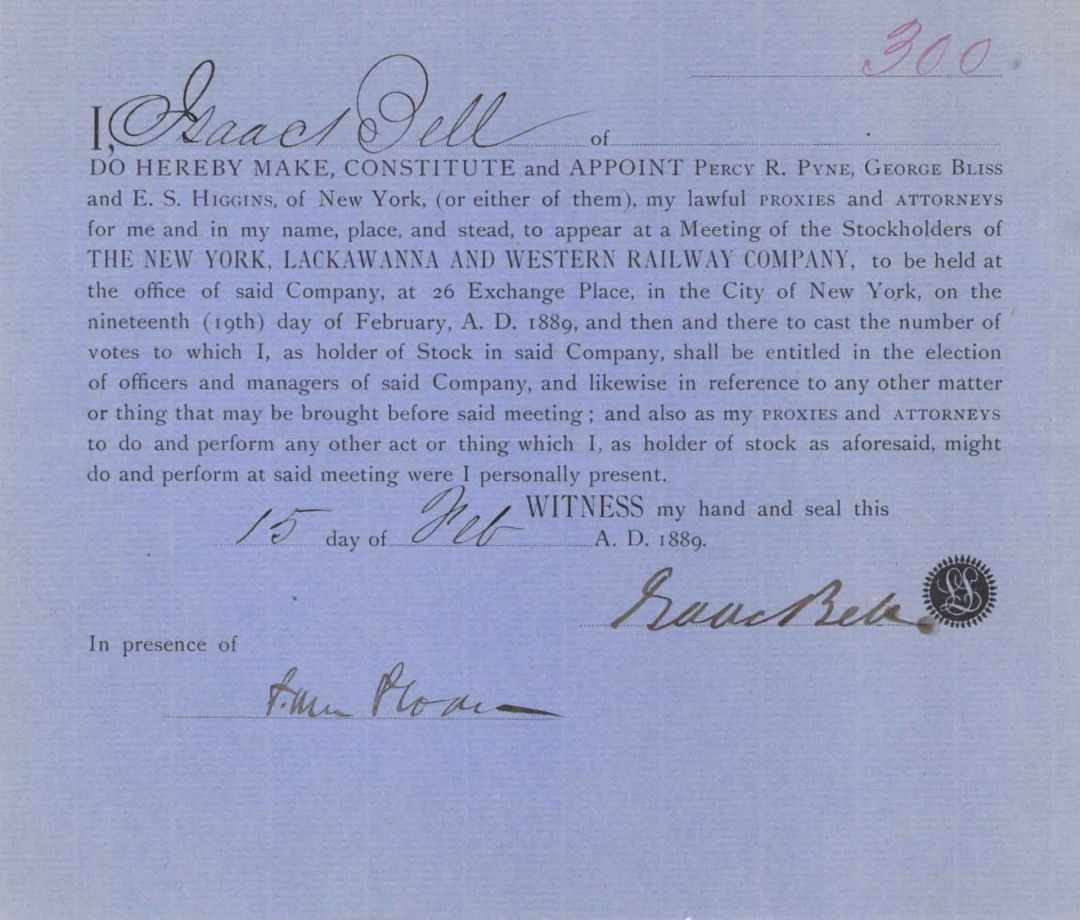 300
I, Isaac Bell of
DO HEREBY MAKE, CONSTITUTE and APPOINT PERCY R. PYNE, GEORGE BLISS
and E. S. HIGGINS, of New York, (or either of them), my lawful PROXIES and ATTORNEYS
for me and in my name, place, and stead, to appear at a Meeting of the Stockholders of
THE NEW YORK, LACKAWANNA AND WESTERN RAILWAY COMPANY, to be held at
the office of said Company, at 26 Exchange Place, in the City of New York, on the
nineteenth (19th) day of February, A. D. 1889, and then and there to cast the number of
votes to which I, as holder of Stock in said Company, shall be entitled in the election
of officers and managers of said Company, and likewise in reference to any other matter
or thing that may be brought before said meeting; and also as my PROXIES and ATTORNEYS
to do and perform any other act or thing which I, as holder of stock as aforesaid, might
do and perform at said meeting were I personally present.
WITNESS my hand and seal this
15 day of Feb A. D. 1889.
Isaac Bell
LS
In presence of